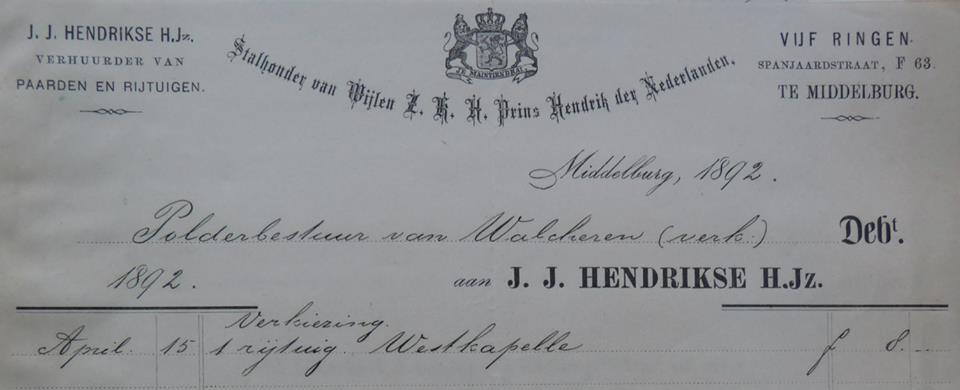 J. J. HENDRIKSE H.Jz.
VERHUURDER VAN
PAARDEN EN RIJTUIGEN.
JE MAINTIENDRAI
Stalhouder van Wijlen Z. K. H. Prins Hendrik der Nederlanden.
VIJF RINGEN.
SPANJAARDSTRAAT, F 63.
TE MIDDELBURG.
Middelburg, 1892.
Polderbestuur van Walcheren (verk:) Debt.
1892. aan J. J. HENDRIKSE H.Jz.
Verkiezing.
April. 15 1 rijtuig. Westkapelle f 8.–